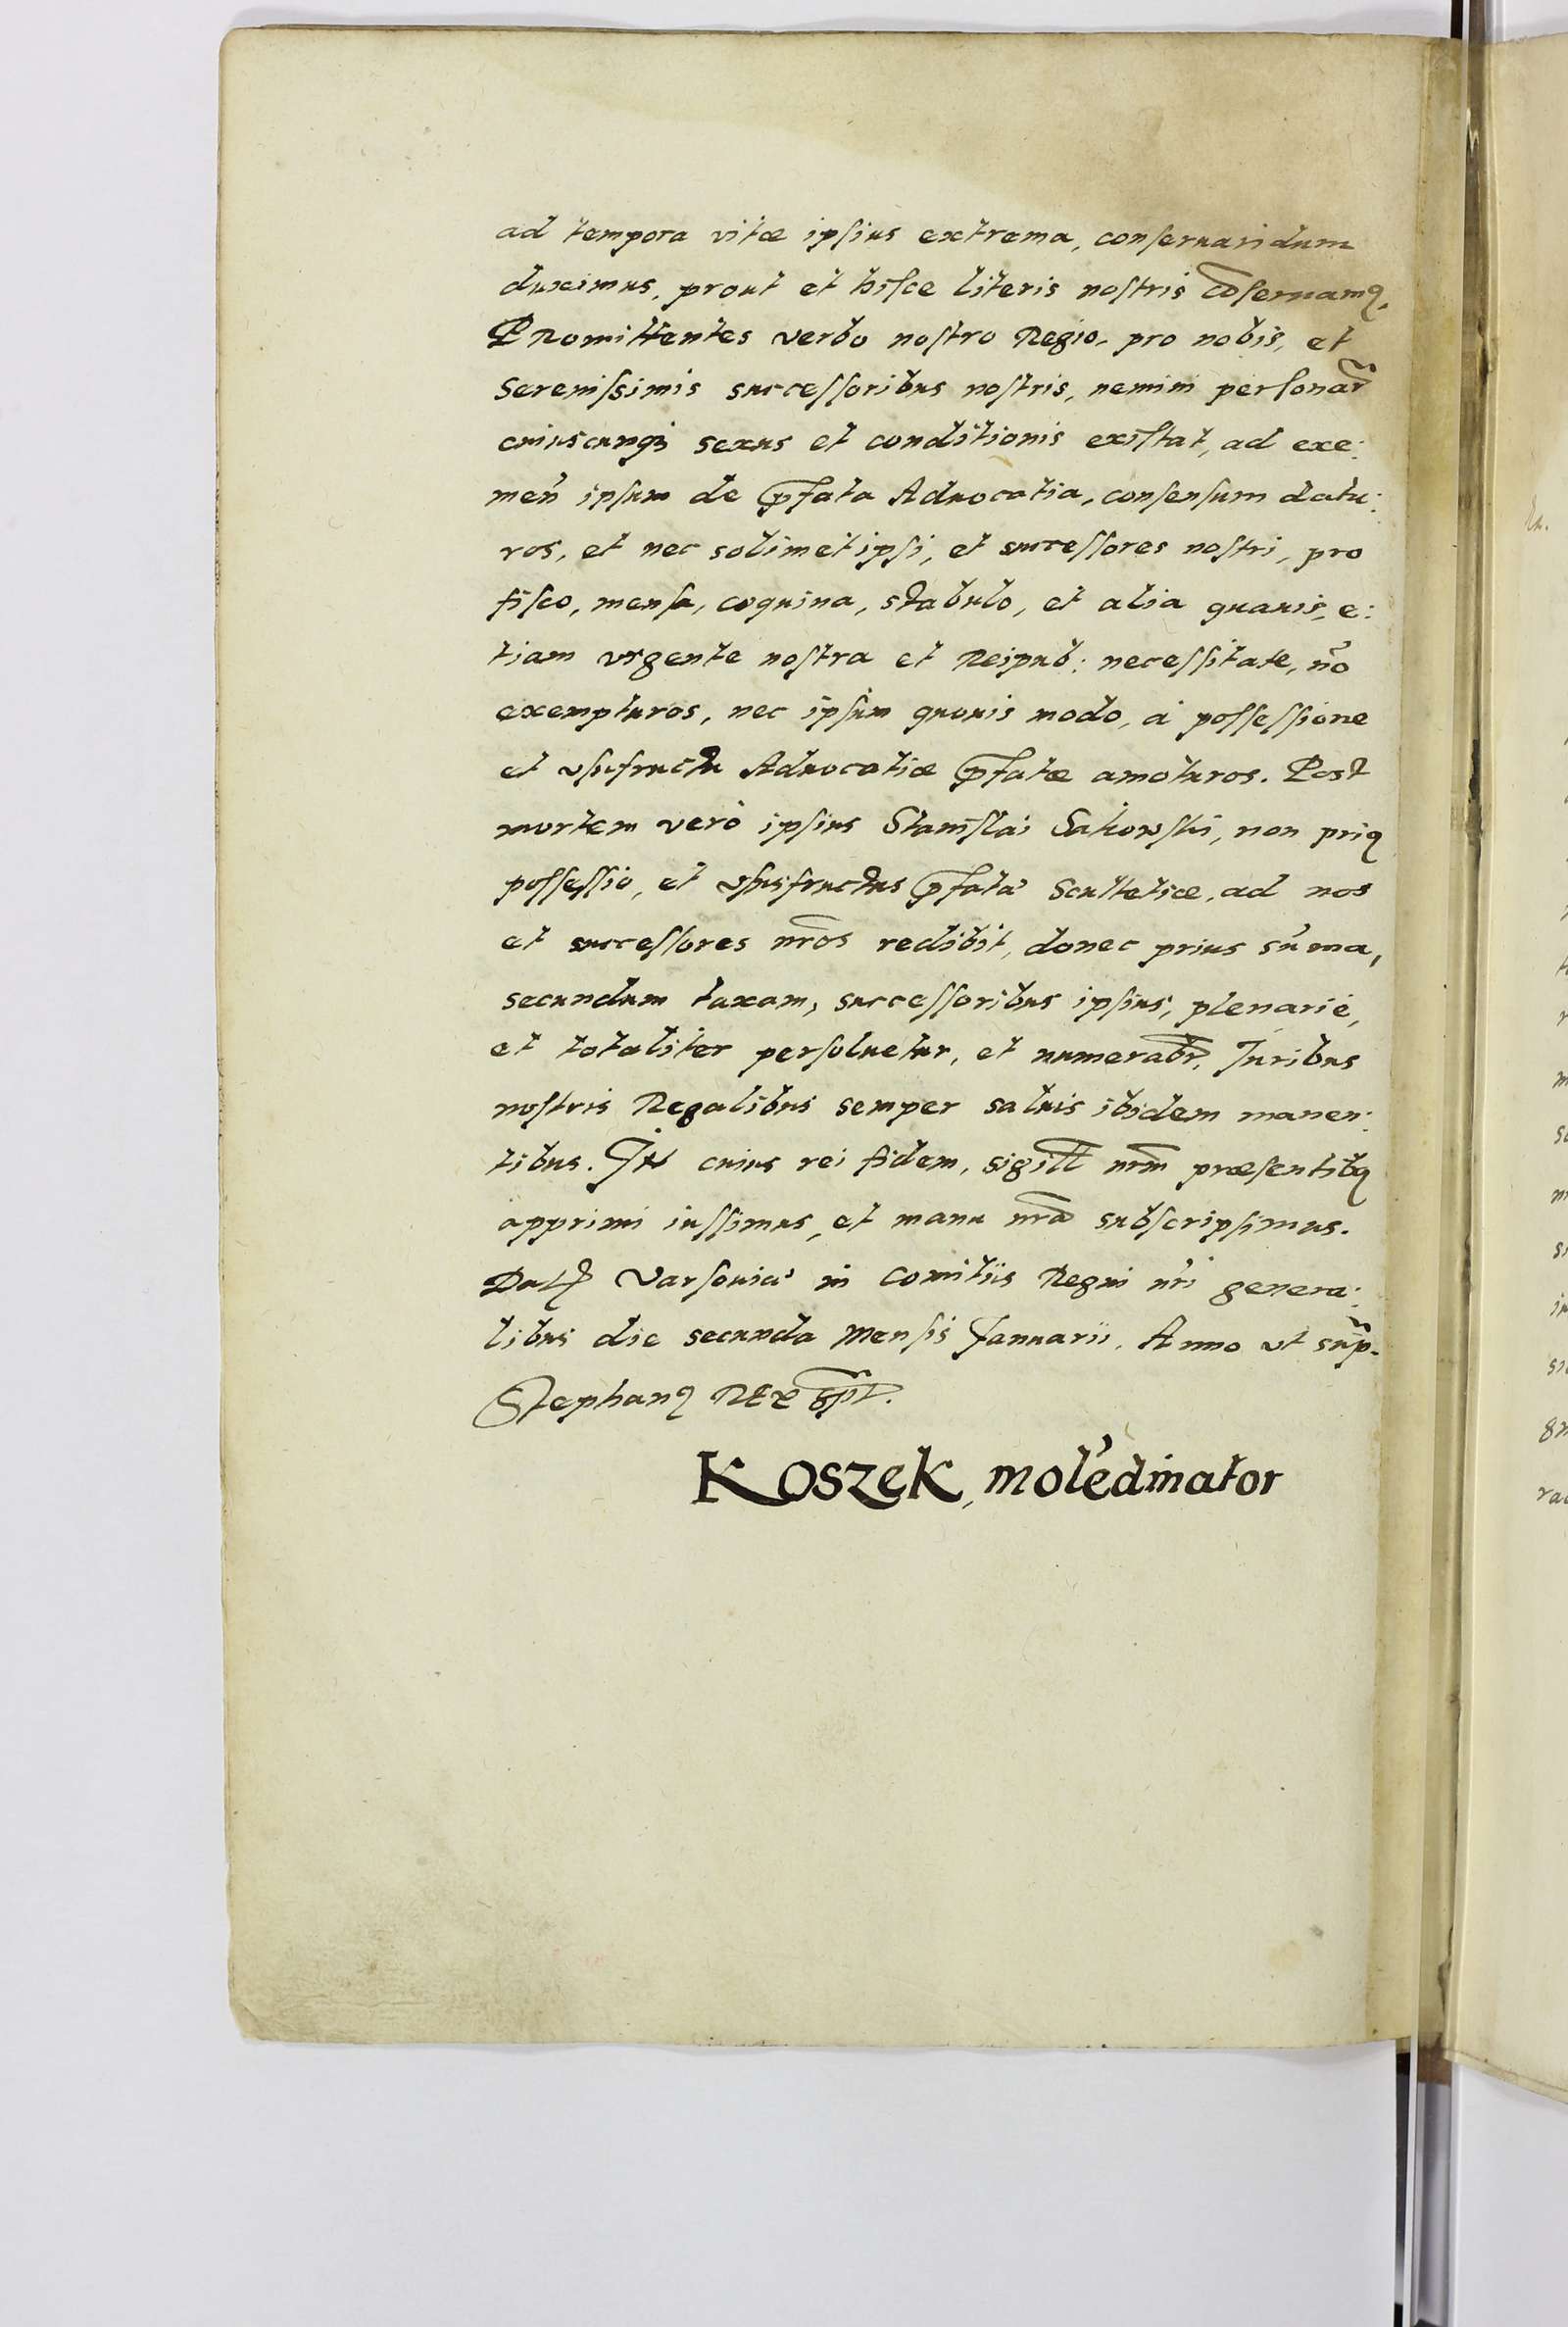 ad tempora vitæ ipſius extrema, conſeruaridum
duximus, prout et hiſce literis noſtris cõſeruamꝰ.
PRomittentes verbo noſtro Regio, pro nobis, et
Sereniſsimis succeſſoribus noſtris, nemini perſonar̃
cuiuscunqꝫ sexus et conditionis exiſtat, ad exe:
men̄ ipſum de p̃fata Aduocatia, conſenſum datu:
ros, et nec solimet ipſi, et succeſſores noſtri, pro
fiſco, menſa, coquina, stabulo, et alia quauis, e:
tiam vrgente noſtra et Reipub: neceſſitate, nõ
exempturos, nec ipſum quouis modo, à poſſeſſione
et vſufructu Aduocatiæ p̃fatæ amoturos. Post
mortem verò ipſius Staniſlai Sakowſki, non priꝰ
poſſeſſio, et vſusfructus p̃fatæ Scultetiæ, ad nos
et succeſſores nr̃os redibit, donec prius sũma,
secundum taxam, succeſſoribus ipſius, plenariè,
et totaliter perſoluetur, et numerabr̃. Juribus
noſtris Regalibus semper saluis ibidem manen:
tibus. IN cuius rei fidem, sigill̃ nr̃m præſentibꝰ
apprimi iuſſimus, et manu nr̃a subſcripſimus.
Datꝭ Varſouiæ in Comitiis Regni nr̃i genera:
libus die secunda Menſis Januarii, Anno vt sup̃.
Stephanꝰ REX ſſpt̃.
KOSZEK, mol'edinator